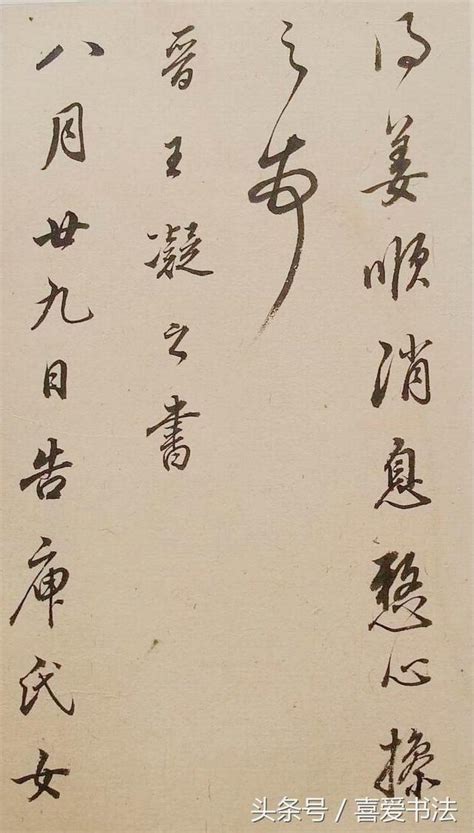 得姜順消息懸心操
之
晉王凝之書
八月廿九日告庾氏女
头条号 / 喜爱书法